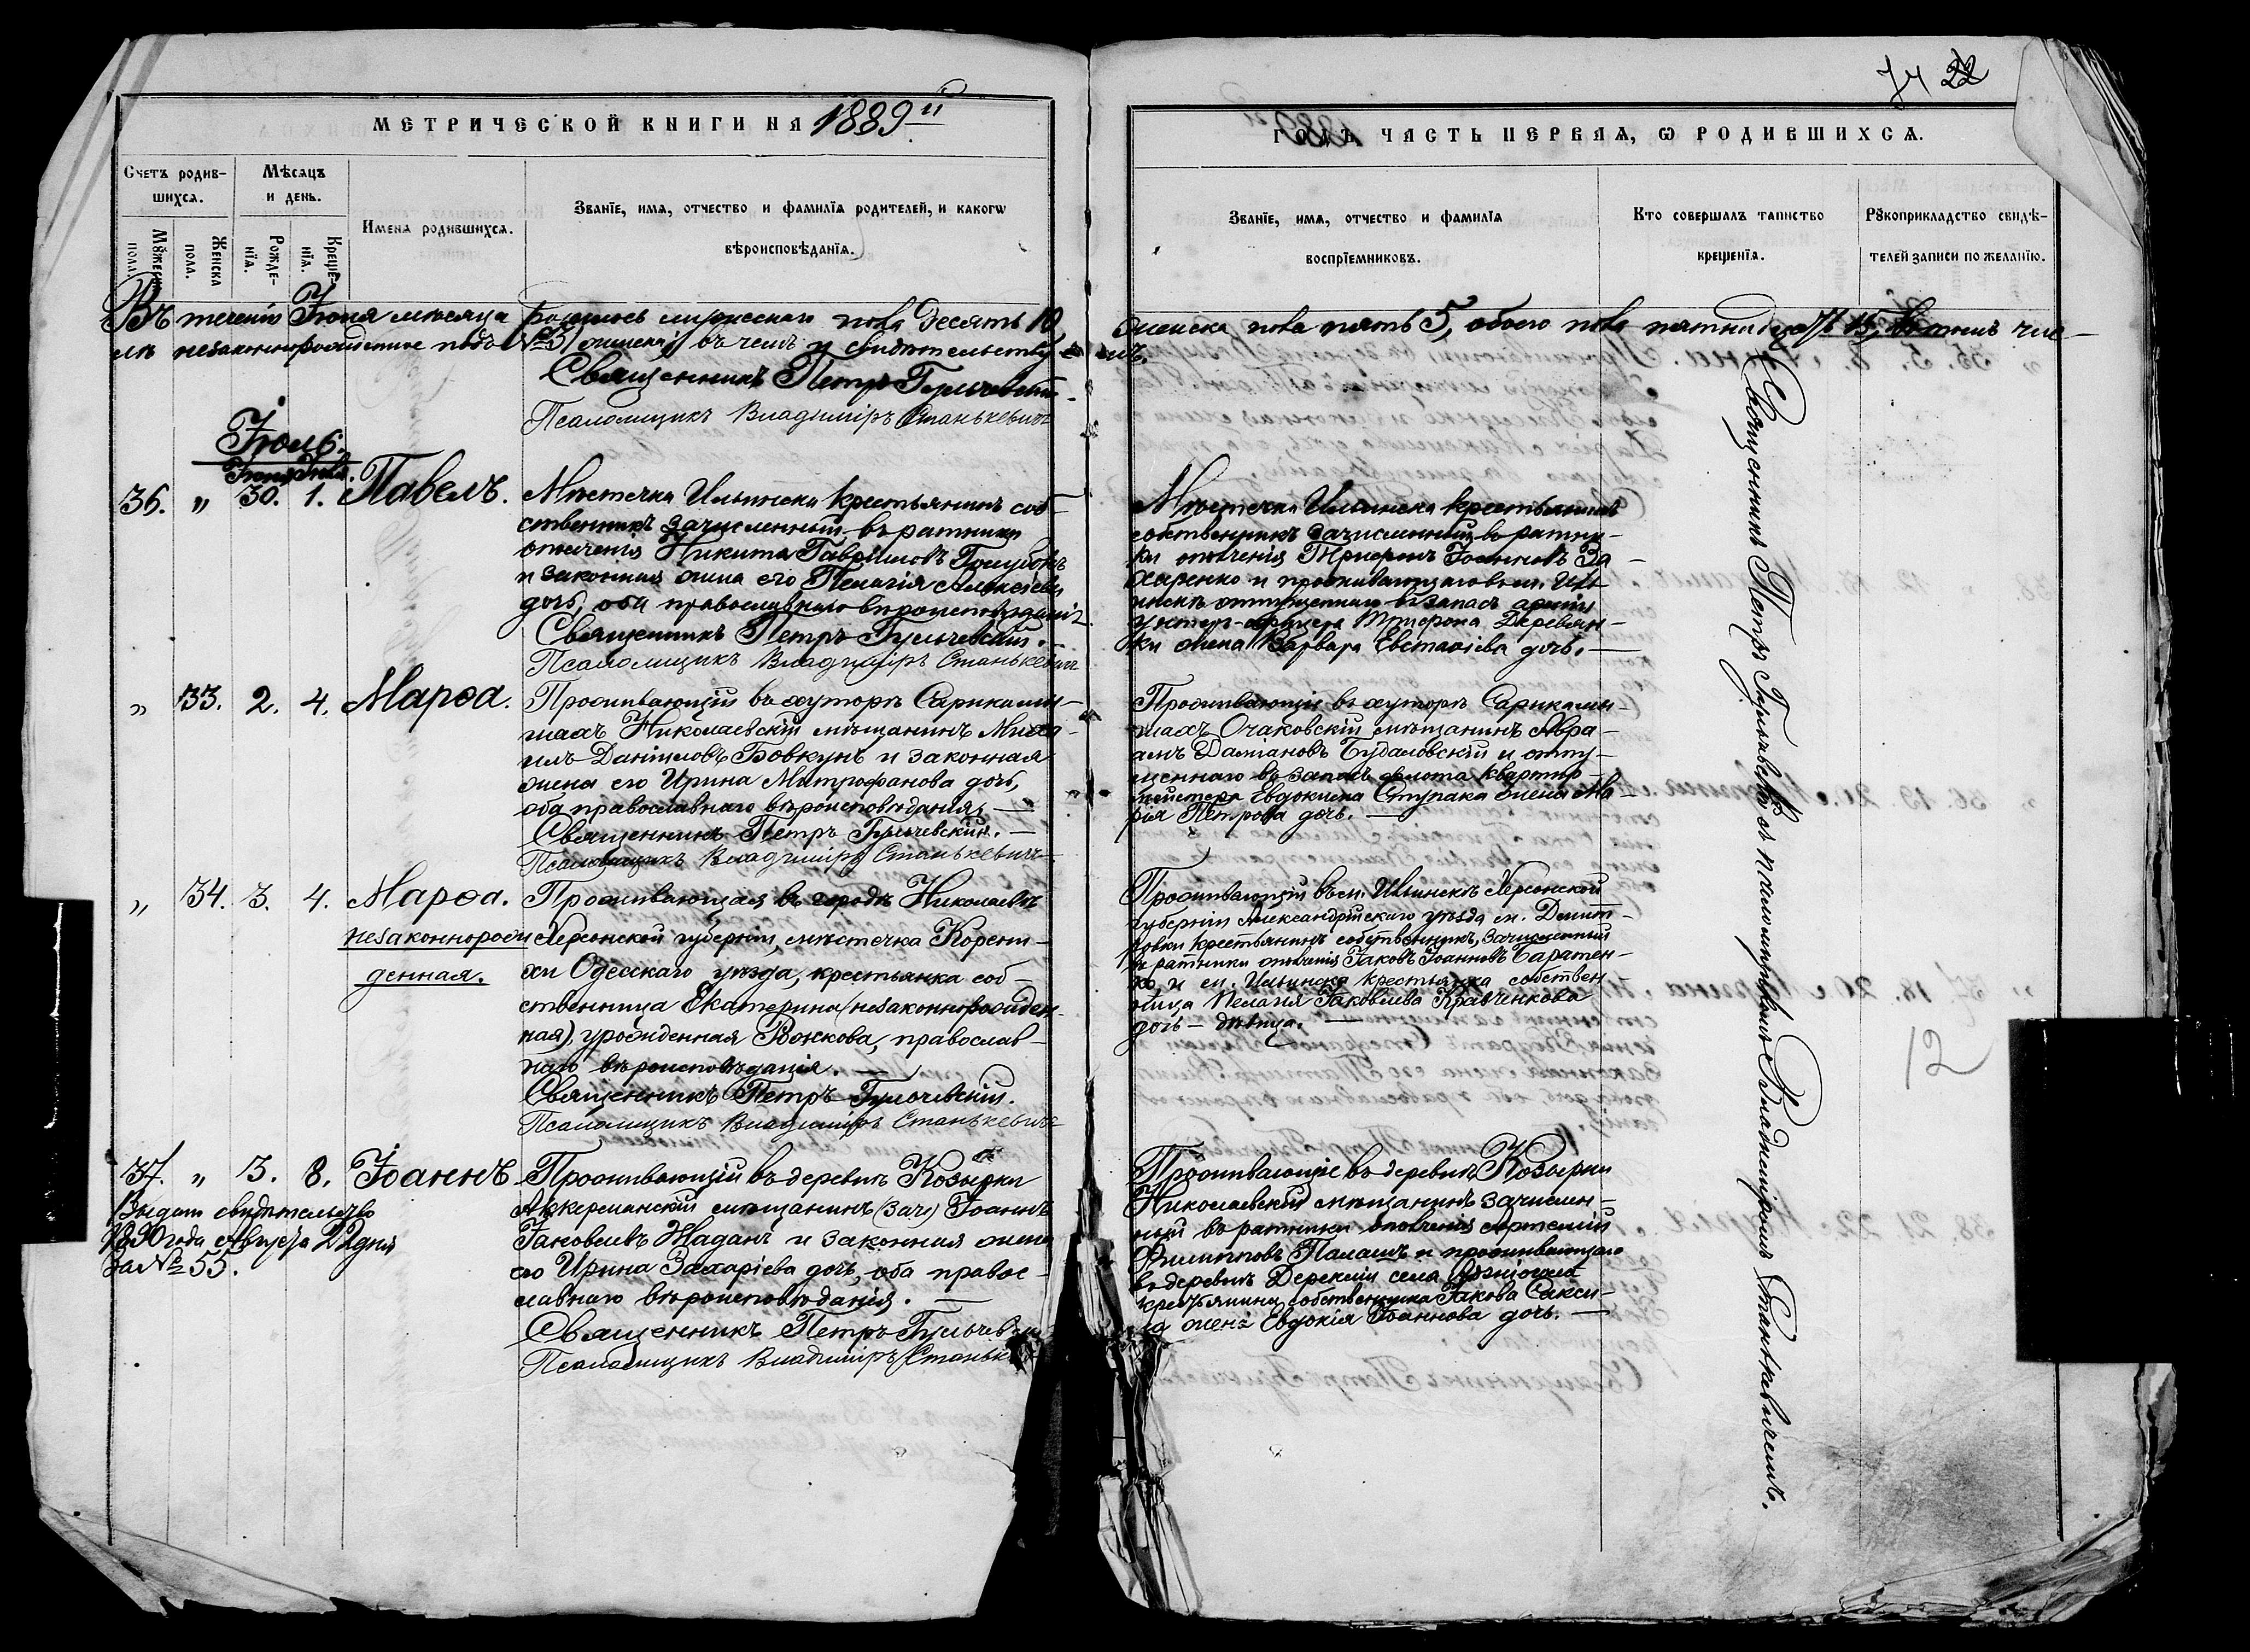 74 22
МЕТРИЧЕСКОЙ КНИГИ НА 1889й
ГОДЪ, ЧАСТЬ ПЕРВАЯ, Ѡ РОДИВШИХСЯ.
Счетъ родив-
шихся.
Мѣсяцъ
и день.
Мꙋжеска
пола.
Женска
пола.
Рожде-
нїя.
Креще-
нїя.
Имена родившихся.
Званїе, имя, отчество и фамилїя родителей, и какогѡ
вѣроисповѣданїя.
Званїе, имя, отчество и фамилїя
воспрїемниковъ.
Кто совершалъ таинство
крещенїя.
Рꙋкоприкладство свидѣ-
телей записи по желанїю.
Въ теченіи Іюня мѣсяца родилось мужеска пола десять 10, женска пола пять 5, обоего пола пятнадцать 15, въ томъ чис-
лѣ незаконнорожденное подъ № женск. въ чемъ и свидѣтельствуемъ.
Священникъ Петръ Гульчевскій
Псаломщикъ Владиміръ Станькевичъ
Іюль.
Іюня Іюля.
36. " 30. 1. Павелъ.
Мѣстечка Ильинска крестьянинъ соб-
ственникъ зачисленный въ ратники
ополченія Никита Гавріиловъ Голубовъ
и законная жена его Пелагія Алексѣева
дочь, оба православнаго вѣроисповѣданія
Священникъ Петръ Гульчевскій.
Псаломщикъ Владиміръ Станькевичъ
Мѣстечка Ильинска крестьянинъ
собственникъ зачисленный въ ратни-
ки ополченія Трифонъ Іоанновъ За-
харенко и проживающаго въ м. Иль-
инскѣ отпущеннаго въ запасъ арміи
унтеръ-офицера Трифона Деревян-
ки жена Варвара Евстафіева дочь. —
" 33. 2. 4. Марѳа.
Проживающій въ хуторѣ Сарикамы-
шахъ Николаевскій мѣщанинъ Миха-
илъ Даніиловъ Бовкунъ и законная
жена его Ирина Митрофанова дочь,
оба православнаго вѣроисповѣданія. —
Священникъ Петръ Гульчевскій. —
Псаломщикъ Владиміръ Станькевичъ
Проживающіе въ хуторѣ Сарикамы-
шахъ Очаковскій мѣщанинъ Авра-
амъ Даміановъ Будаловскій и отпу-
щеннаго въ запасъ флота квартир-
мейстера Евдокима Ступака жена Ма-
рія Петрова дочь. —
" 34. 3. 4. Марѳа.
незаконнорож-
денная.
Проживающая въ городѣ Николаевѣ
Херсонской губерніи, мѣстечка Корени-
хи Одесскаго уѣзда, крестьянка соб-
ственница Екатерина (незаконнорожден-
ная), урожденная Вожкова, православ-
наго вѣроисповѣданія. —
Священникъ Петръ Гульчевскій.
Псаломщикъ Владиміръ Станькевичъ
Проживающій въ м. Ильинскѣ Херсонской
губерніи Александрійскаго уѣзда м. Дмит-
ровки крестьянинъ собственникъ, зачисленный
въ ратники ополченія Іаковъ Іоанновъ Баратен-
ко и м. Ильинска крестьянка собствен-
ница Пелагія Іаковлева Кравченкова
дочь — дѣвица. —
12
37. " 3. 8. Іоаннъ
Выдано свидѣтельство
1890 года Августа 22 дня
за № 55.
Проживающій въ деревнѣ Козырки
Аккерманскій мѣщанинъ (зач) Іоаннъ
Іаковлевъ Жаданъ и законная жена
его Ирина Захаріева дочь, оба право-
славнаго вѣроисповѣданія. —
Священникъ Петръ Гульчев
Псаломщикъ Владиміръ Станьк
Проживающіе въ деревнѣ Козырки
Николаевскій мѣщанинъ зачислен-
ный въ ратники ополченія Артемій
Филипповъ Палашъ и проживающаго
въ деревнѣ Дереклии села
крестьянина собственника Іакова Сакси-
жена Евдокія Іоаннова дочь. —
Священникъ Петръ Гульчевскій съ псаломщикомъ Владиміромъ Станькевичемъ.